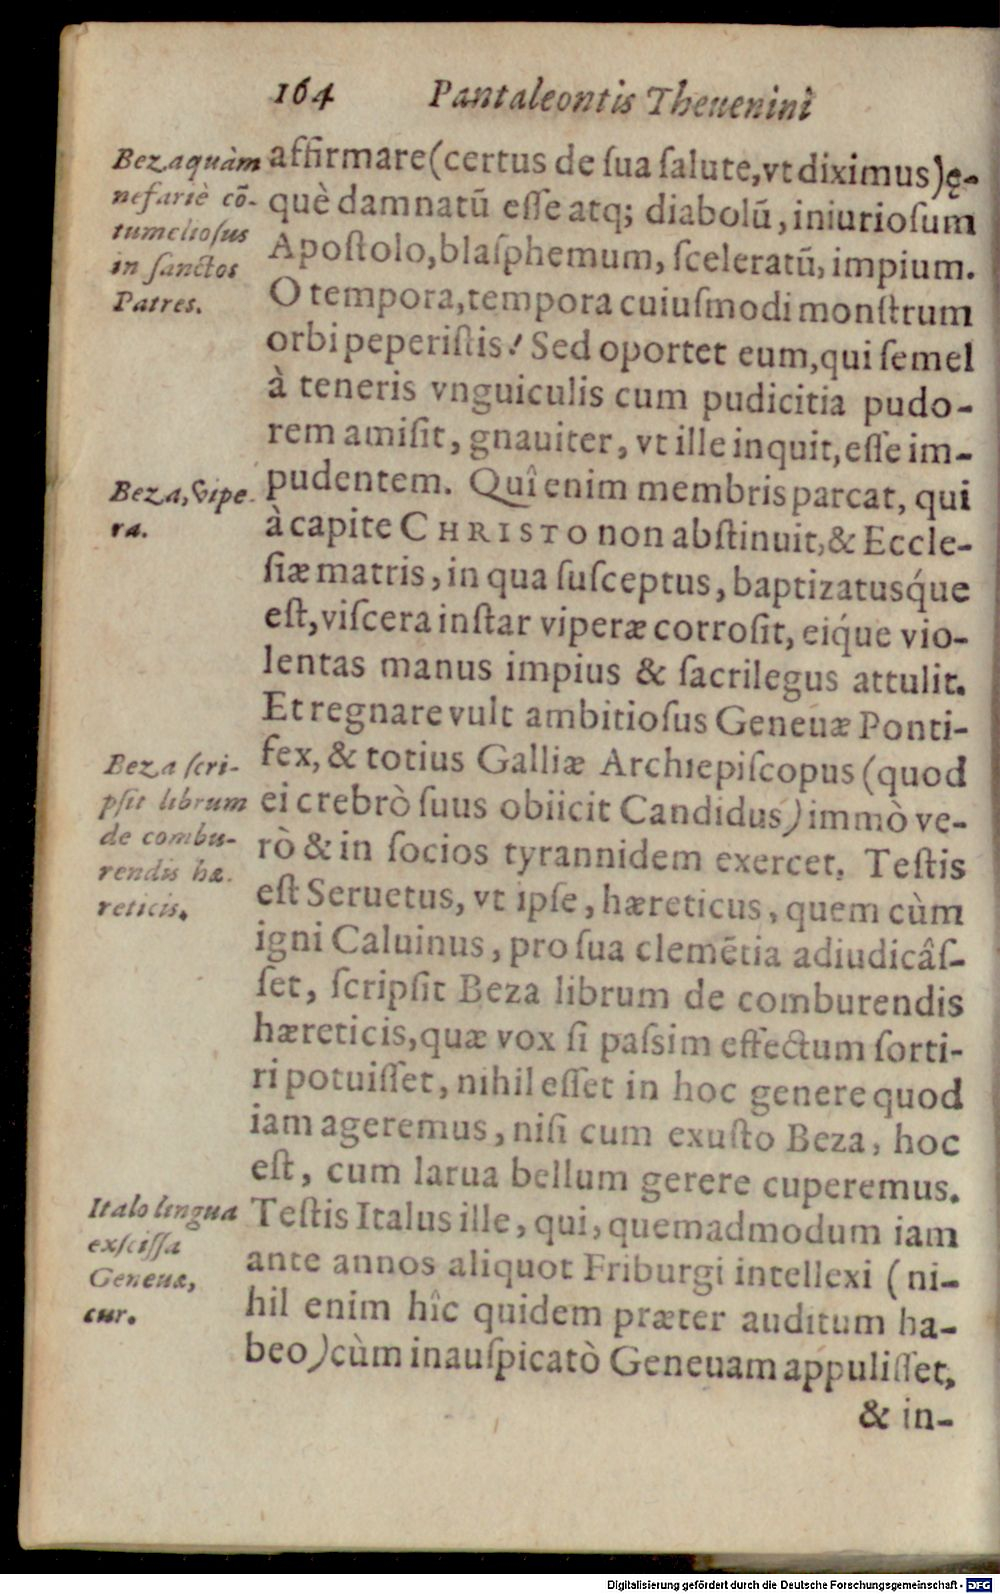 164 Pantaleontis Theuenini
Beza quàm
nefariè cō-
tumeliosus
in sanctos
Patres.
affirmare (certus de sua salute, vt diximus) ę-
què damnatū esse atq; diabolū, iniuriosum
Apostolo, blasphemum, sceleratū, impium.
O tempora, tempora cuiusmodi monstrum
orbi peperistis! Sed oportet eum, qui semel
à teneris vnguiculis cum pudicitia pudo-
rem amisit, gnauiter, vt ille inquit, esse im-
Beza, vipe-
ra.
pudentem. Quî enim membris parcat, qui
à capite CHRISTO non abstinuit, & Eccle-
siæ matris, in qua susceptus, baptizatusq́ue
est, viscera instar viperæ corrosit, eiq́ue vio-
lentas manus impius & sacrilegus attulit.
Et regnare vult ambitiosus Geneuæ Ponti-
Beza scri-
psit librum
de combu-
rendis hæ-
reticis.
fex, & totius Galliæ Archiepiscopus (quod
ei crebrò suus obiicit Candidus) immò ve-
rò & in socios tyrannidem exercet. Testis
est Seruetus, vt ipse, hæreticus, quem cùm
igni Caluinus, pro sua clemētia adiudicâs-
set, scripsit Beza librum de comburendis
hæreticis, quæ vox si passim effectum sorti-
ri potuisset, nihil esset in hoc genere quod
iam ageremus, nisi cum exusto Beza, hoc
est, cum larua bellum gerere cuperemus.
Italo lingua
exscissa
Geneuæ,
cur.
Testis Italus ille, qui, quemadmodum iam
ante annos aliquot Friburgi intellexi (ni-
hil enim hîc quidem præter auditum ha-
beo) cùm inauspicatò Geneuam appulisset,
& in-
Digitalisierung gefördert durch die Deutsche Forschungsgemeinschaft - DFG